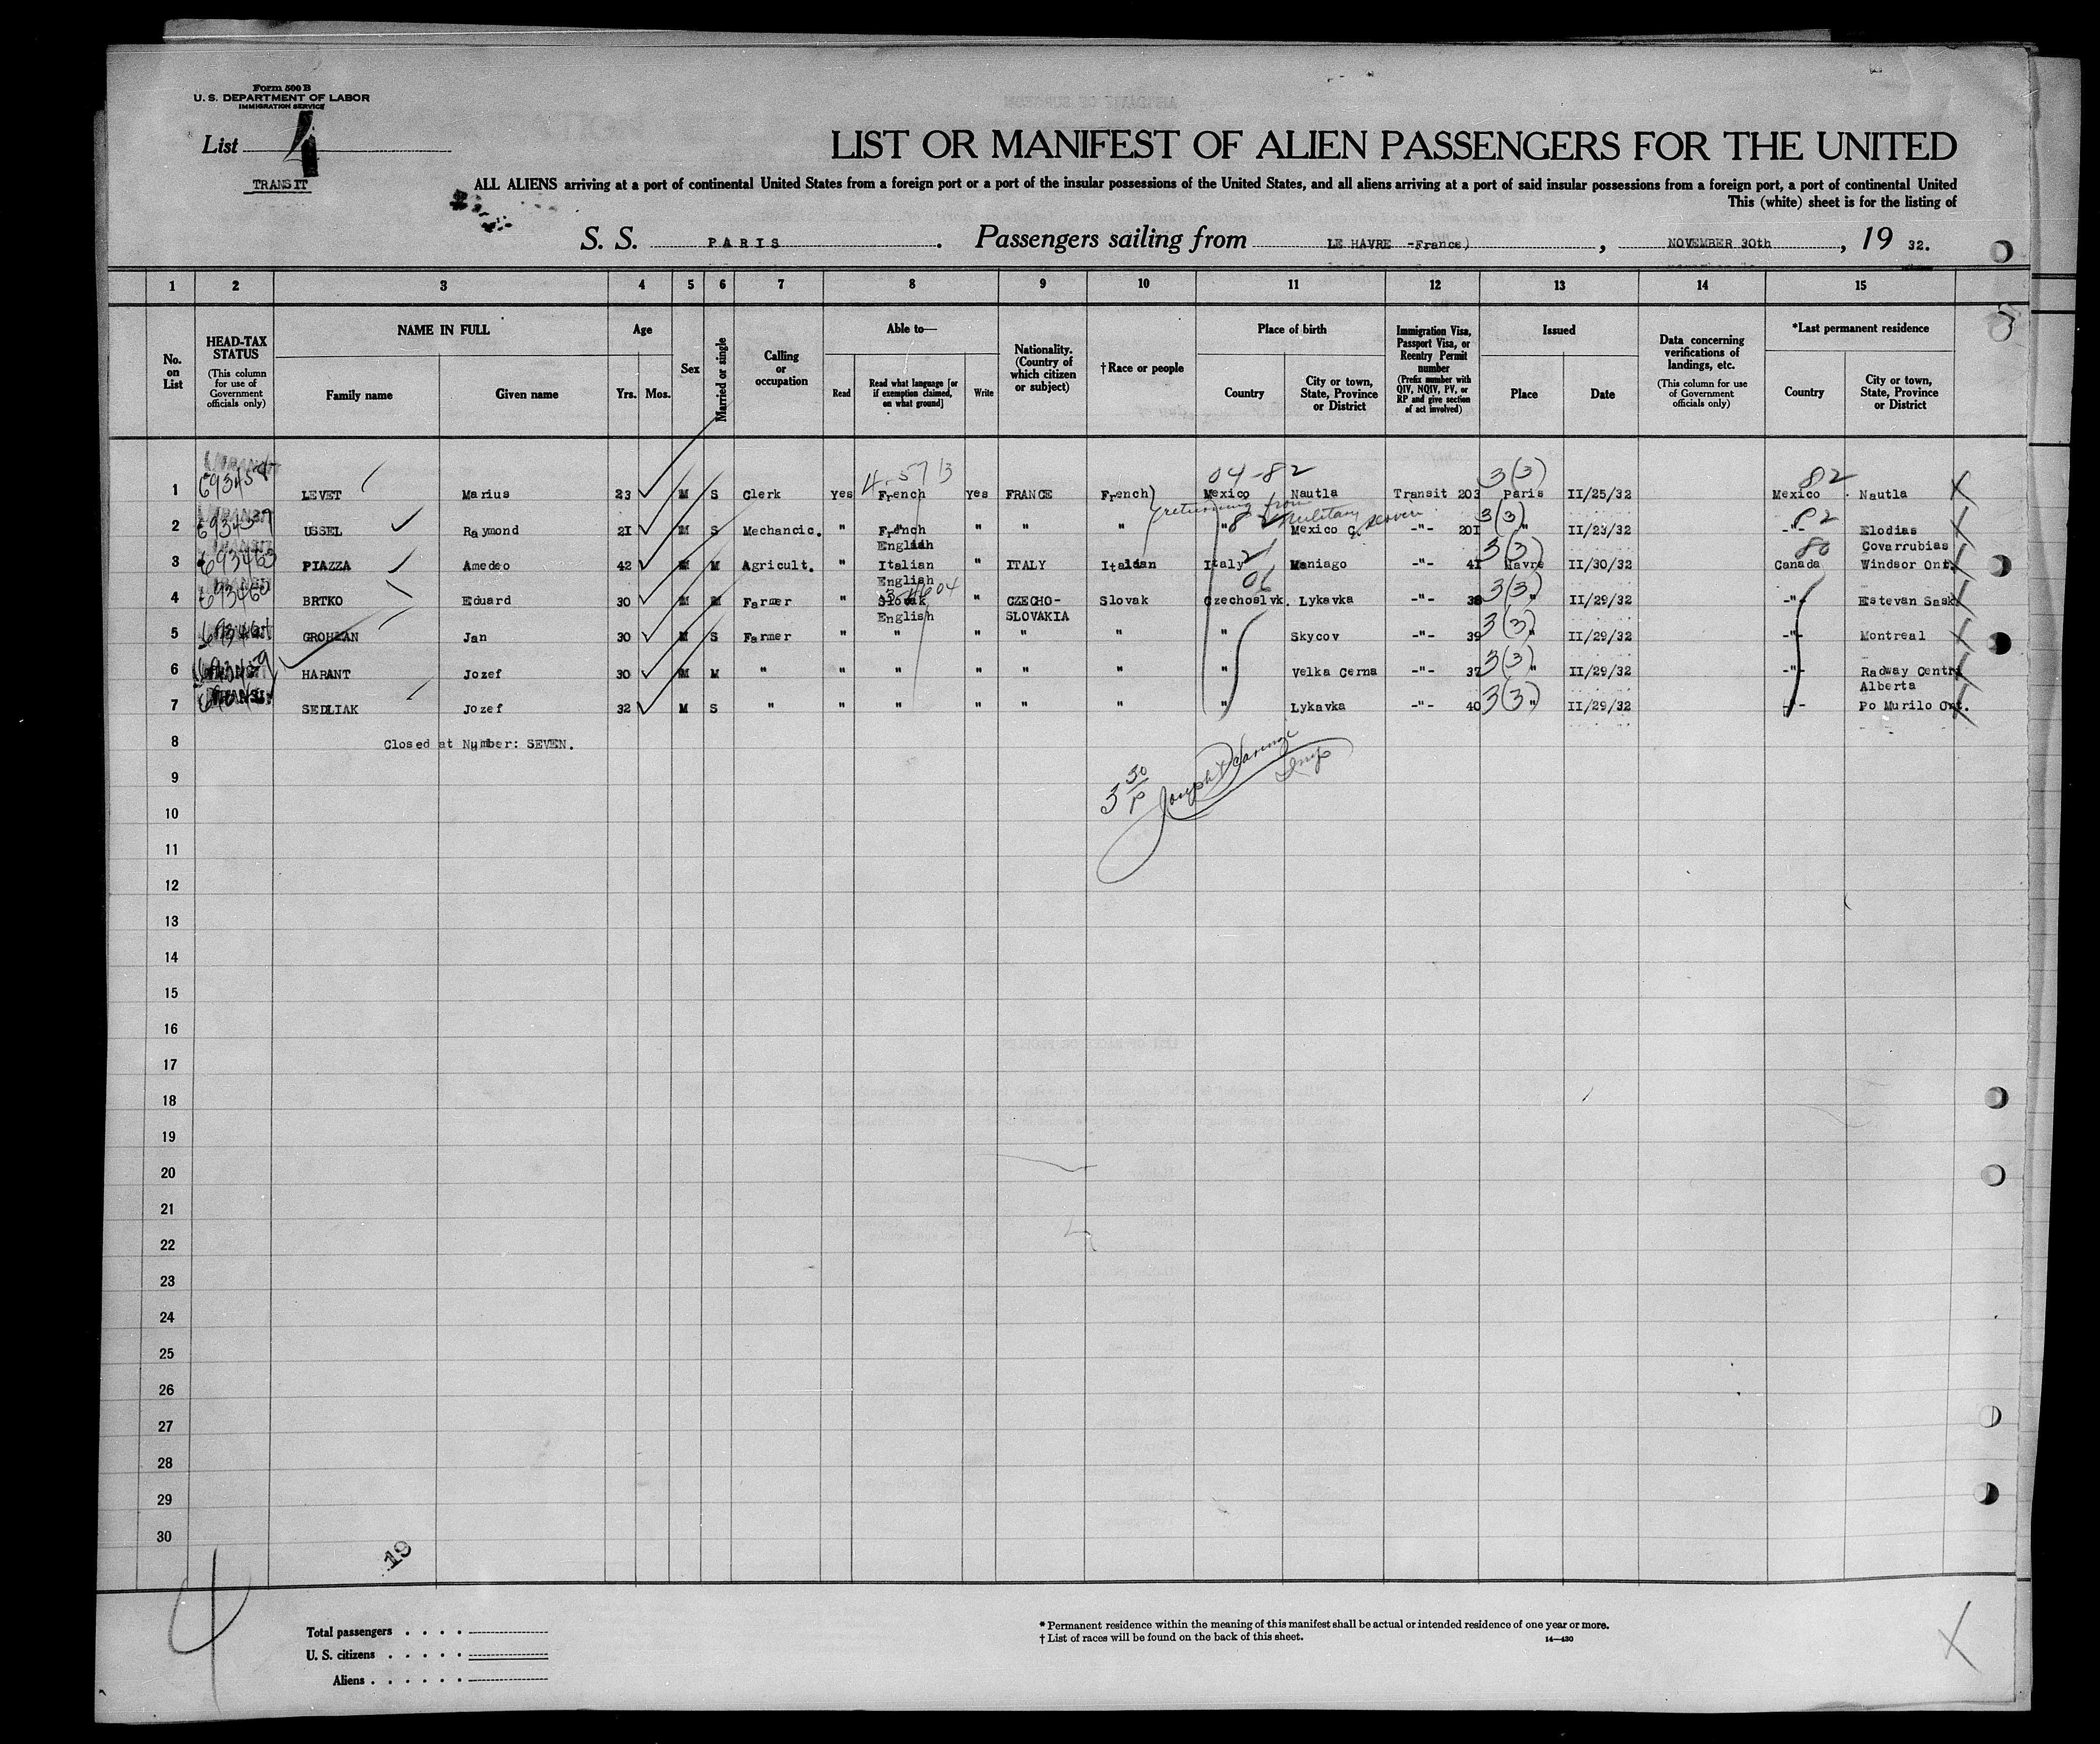 Form 500 B
U. S. DEPARTMENT OF LABOR
IMMIGRATION SERVICE
List 4
TRANSIT
LIST OR MANIFEST OF ALIEN PASSENGERS FOR THE UNITED
ALL ALIENS arriving at a port of continental United States from a foreign port or a port of the insular possessions of the United States, and all aliens arriving at a port of said insular possessions from a foreign port, a port of continental United
This (white) sheet is for the listing of
S. S. PARIS. Passengers sailing from LE HAVRE -France), NOVEMBER 30th, 19 32.
1 2 3 4 5 6 7 8 9 10 11 12 13 14 15
No. on List
HEAD-TAX STATUS (This column for use of Government officials only)
NAME IN FULL
Family name Given name
Age
Yrs. Mos.
Sex
Married or single
Calling or occupation
Able to—
Read Read what language [or if exemption claimed, on what ground] Write
Nationality. (Country of which citizen or subject)
†Race or people
Place of birth
Country City or town, State, Province or District
Immigration Visa, Passport Visa, or Reentry Permit number (Prefix number with QIV, NQIV, PV, or RP and give section of act involved)
Issued
Place Date
Data concerning verifications of landings, etc. (This column for use of Government officials only)
*Last permanent residence
Country City or town, State, Province or District
04-82 3(3) 82
1 693458 LEVET Marius 23 M S Clerk yes French yes FRANCE French Mexico Nautla Transit 203 Paris II/25/32 Mexico Nautla
returning from military service
3(3) 82
2 USSEL Raymond 21 M S Mechancic. " French " " " " Mexico C. -"- 201 " II/23/32 -"- Elodias
English Covarrubias
3(3) 80
3 693463 PIAZZA Amedeo 42 M M Agricult. " Italian " ITALY Italian Italy Maniago -"- 41 Havre II/30/32 Canada Windsor Ont.
English
3(3)
4 693460 BRTKO Eduard 30 M M Farmer " Slovak " CZECHO- Slovak Czechoslvk. Lykavka -"- 38 " II/29/32 -"- Estevan Sask
English SLOVAKIA
3(3)
5 GROHMAN Jan 30 M S Farmer " " " " " " Skycov -"- 39 " II/29/32 -"- Montreal
3(3)
6 HARANT Jozef 30 M M " " " " " " " Velka Cerna -"- 37 II/29/32 -"- Radway Centr
Alberta
3(3)
7 SEDLIAK Jozef 32 M S " " " " " " " Lykavka -"- 40 " II/29/32 -"- Po Murilo Ont.
8 Closed at Number: SEVEN.
9
10
11
12
13
14
15
16
17
18
19
20
21
22
23
24
25
26
27
28
29
30
19
4
Total passengers
U. S. citizens
Aliens
* Permanent residence within the meaning of this manifest shall be actual or intended residence of one year or more.
† List of races will be found on the back of this sheet. 14—430